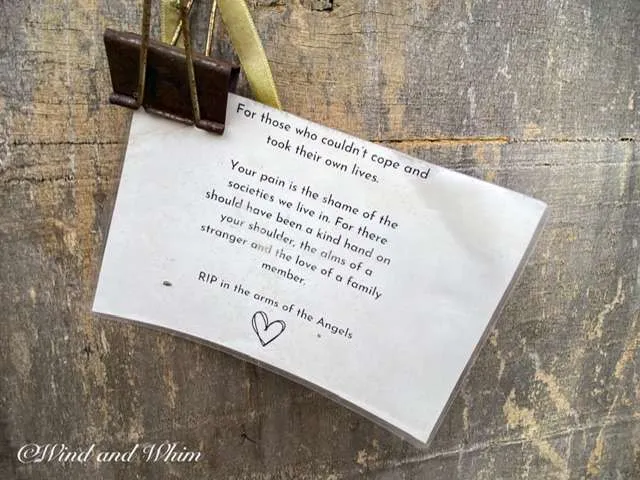 For those who couldn't cope and
took their own lives.
Your pain is the shame of the
societies we live in. For there
should have been a kind hand on
your shoulder, the alms of a
stranger and the love of a family
member.
RIP in the arms of the Angels
©Wind and Whim